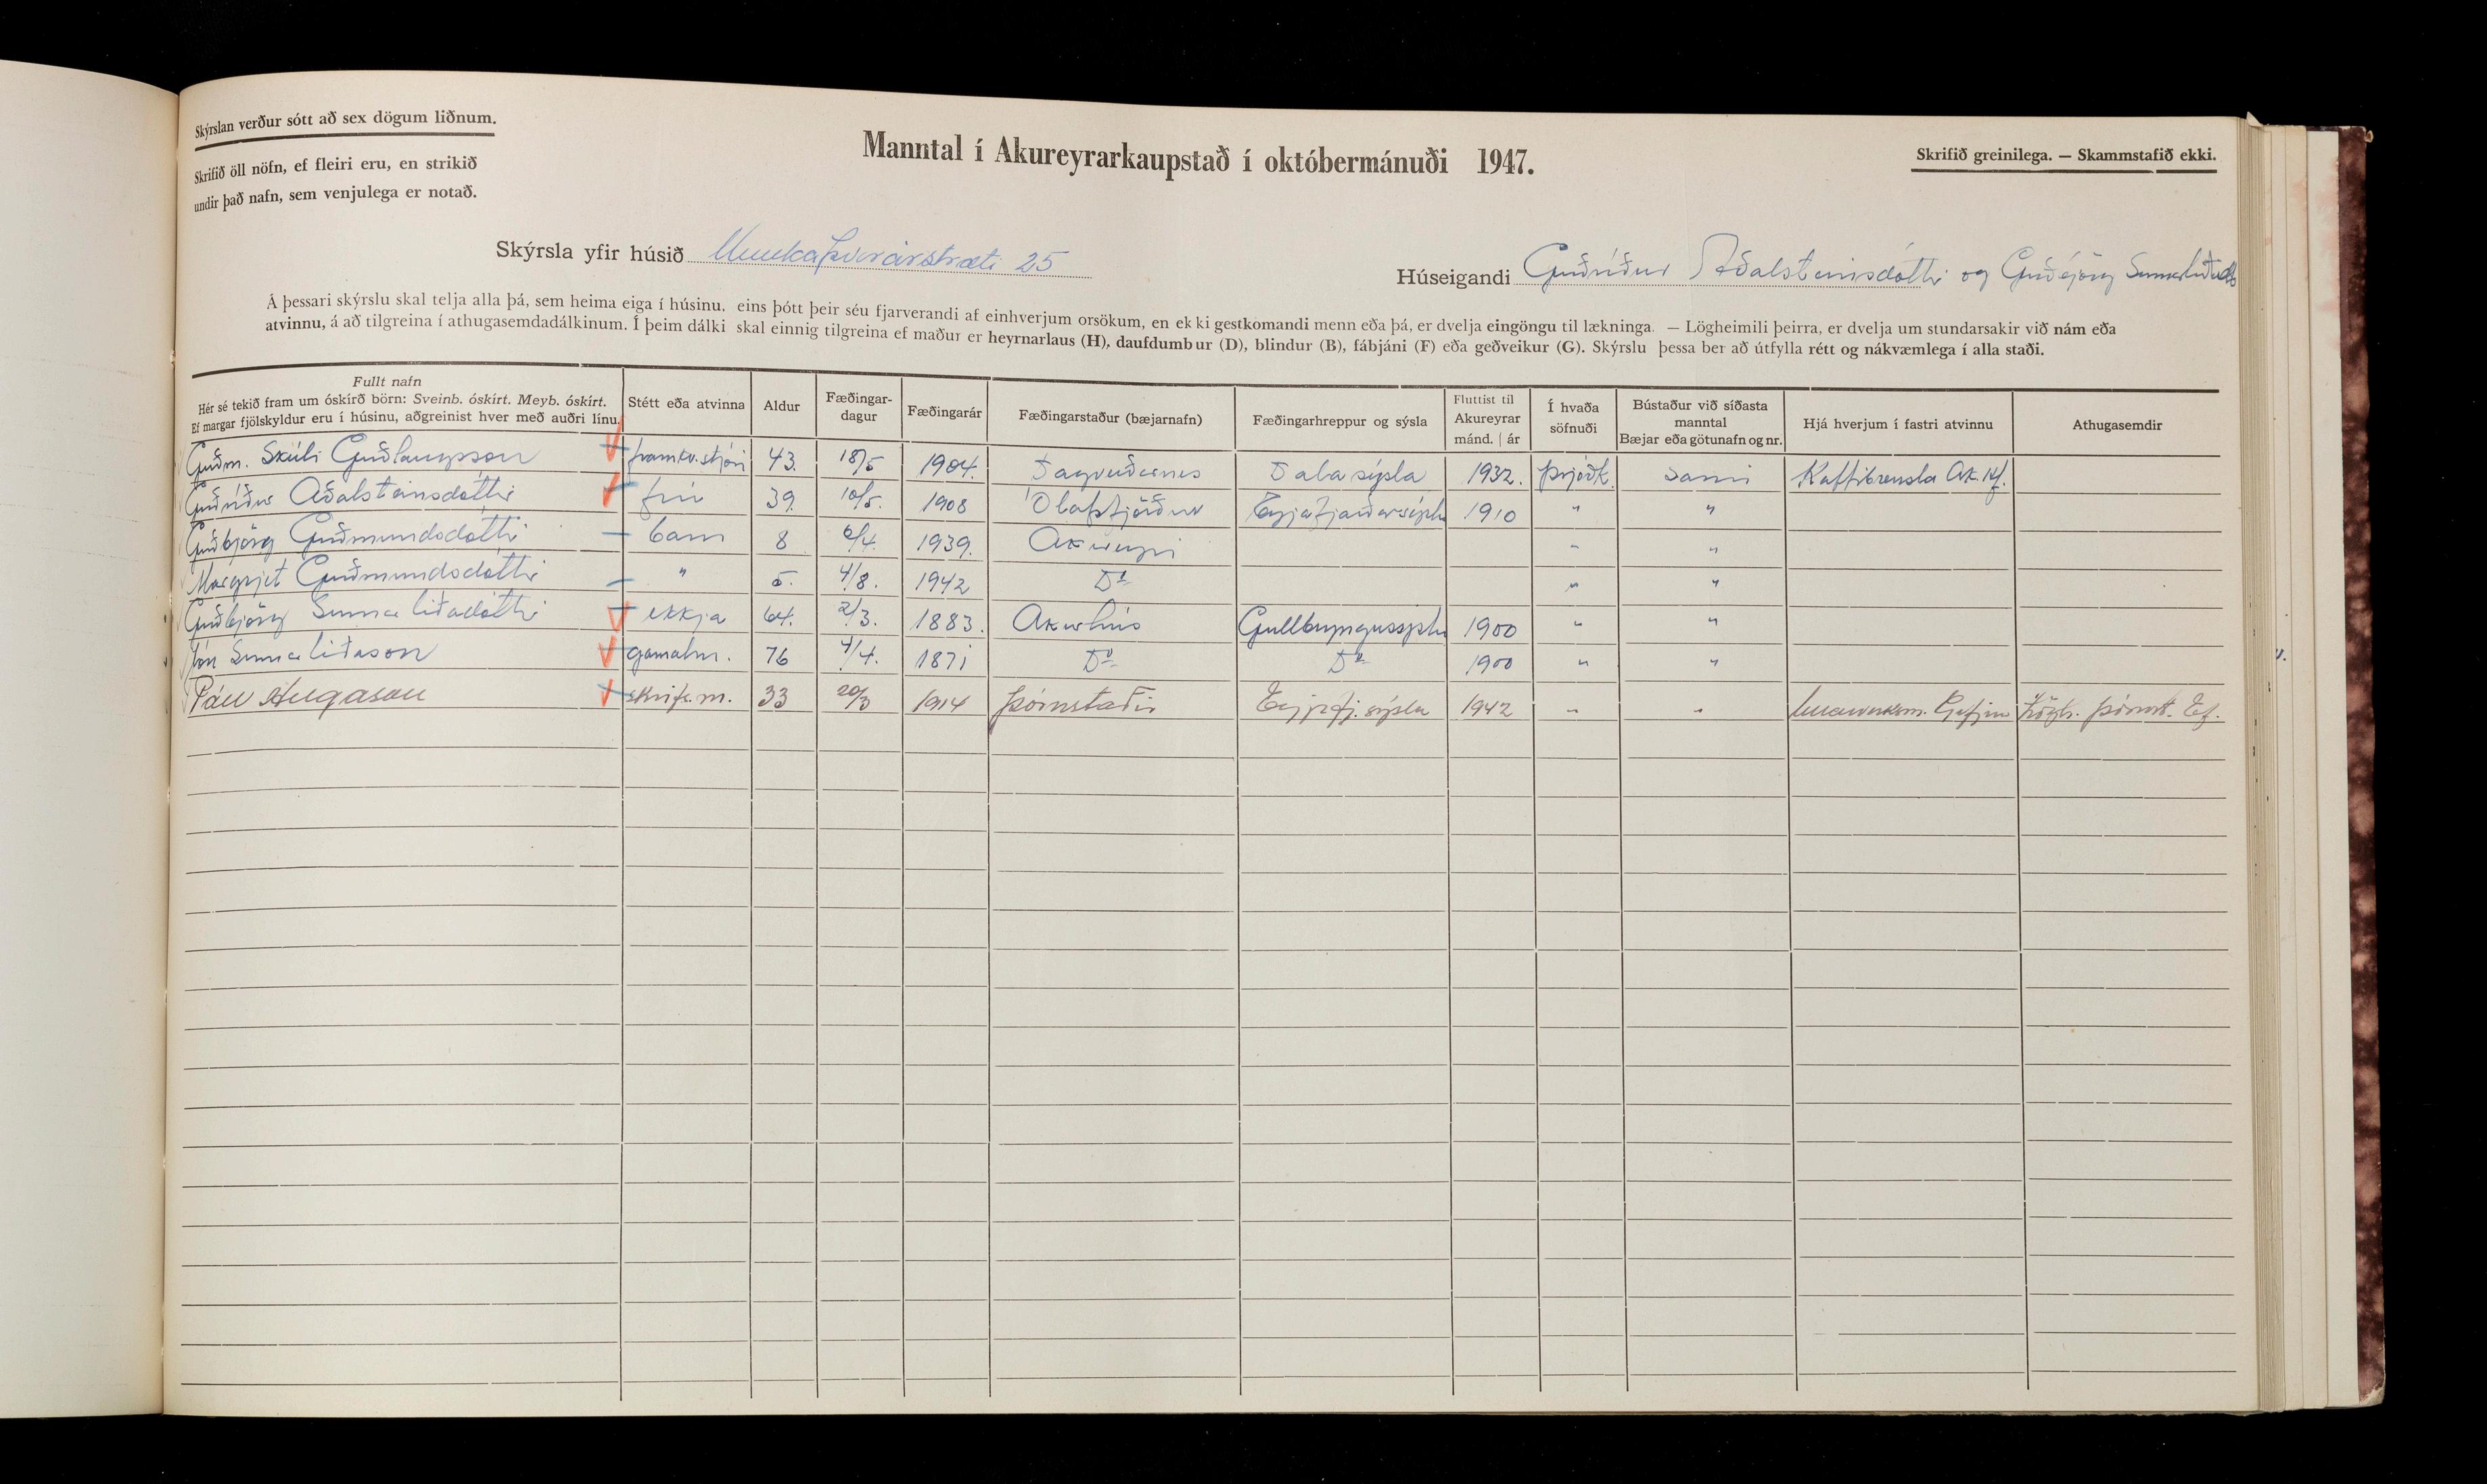 Skýrslan verður sótt að sex dögum liðnum.
Skrifið öll nöfn, ef fleiri eru, en strikið
undir það nafn, sem venjulega er notað.
Manntal í Akureyrarkaupstað í októbermánuði 1947.
Skrifið greinilega. — Skammstafið ekki.
Skýrsla yfir húsið Munkaþverárstræti 25
Húseigandi Guðríður Aðalsteinsdóttir og Guðbjörg
Á þessari skýrslu skal telja alla þá, sem heima eiga í húsinu, eins þótt þeir séu fjarverandi af einhverjum orsökum, en ekki gestkomandi menn eða þá, er dvelja eingöngu til lækninga. — Lögheimili þeirra, er dvelja um stundarsakir við nám eða
atvinnu, á að tilgreina í athugasemdadálkinum. Í þeim dálki skal einnig tilgreina ef maður er heyrnarlaus (H), daufdumbur (D), blindur (B), fábjáni (F) eða geðveikur (G). Skýrslu þessa ber að útfylla rétt og nákvæmlega í alla staði.
Fullt nafn
Hér sé tekið fram um óskírð börn: Sveinb. óskírt. Meyb. óskírt.
Ef margar fjölskyldur eru í húsinu, aðgreinist hver með auðri línu.
Stétt eða atvinna
Aldur
Fæðingar-
dagur
Fæðingarár
Fæðingarstaður (bæjarnafn)
Fæðingarhreppur og sýsla
Fluttist til
Akureyrar
mánd. | ár
Í hvaða
söfnuði
Bústaður við síðasta
manntal
Bæjar eða götunafn og nr.
Hjá hverjum í fastri atvinnu
Athugasemdir
Guðm. Skúli Guðlaugsson framkv.stjóri 43. 18/5 1904. Dagverðarnes Dalasýsla 1932. Þjóðk. Sami Kaffibrensla Ak. hf.
Guðríður Aðalsteinsdóttir frú 39. 10/5. 1908 Ólafsfjörður Eyjafjarðarsýsla 1910 " "
Guðbjörg Guðmundsdóttir barn 8 6/4. 1939. Akureyri " "
Margrjet Guðmundsdóttir " 5. 4/8. 1942 Do " "
Guðbjörg Sumarliðadóttir ekkja 64. 2/3. 1883. Akurhús Gullbringusýsla 1900 " "
Jón Sumarliðason gamalm. 76 4/4. 1871 Do Do 1900 " "
Páll Helgason skrifs.m. 33 20/3 1914 Þórustaðir Eyjafj.sýsla 1942 " " Gefjun Lögh. Þórust. Ef.